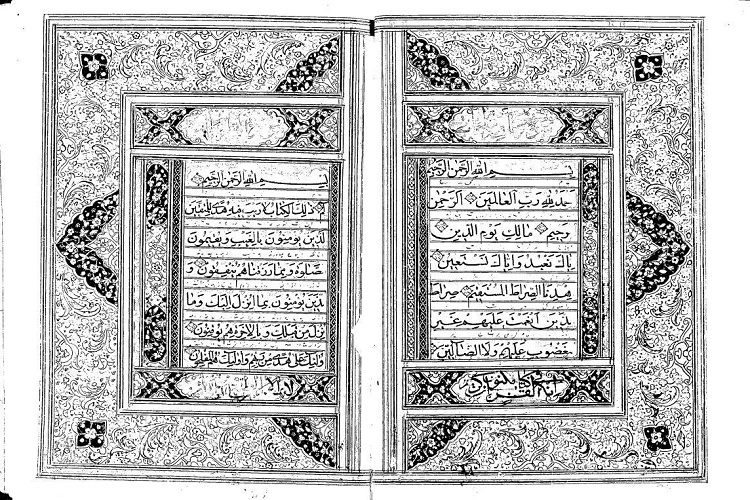 بسم الله الرحمن الرحيم
حمد لله رب العالمين الرحمن
رحيم مالك يوم الدين
ياك نعبد واياك نستعين
هدنا الصراط المستقيم صراط
لذين انعمت عليهم غير
مغضوب عليهم ولا الضالين
انه لقرآن كريم في كتاب مكنون
بسم الله الرحمن الرحيم
ذلك الكتاب لا ريب فيه هدى للمتقين
لذين يومنون بالغيب ويقيمون
صلوة ومما رزقناهم ينفقون و
لذين يومنون بما انزل اليك وما
نزل من قبلك وبالاخرة هم يوقنون
ولئك على هدى من ربهم واولئك هم المفلحون